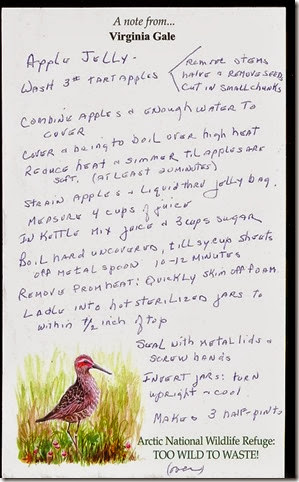 A note from...
Virginia Gale
Apple Jelly -
Wash 3# tart apples
Remove stems
halve & remove seeds
cut in small chunks
Combine apples & enough water to
cover
Cover & bring to boil over high heat
Reduce heat & simmer til apples are
soft. (at least 20 minutes)
Strain apples & liquid thru jelly bag.
Measure 4 cups of juice
In kettle mix juice & 3 cups sugar
Boil hard uncovered, till syrup sheets
off metal spoon 10-12 minutes
Remove from heat: Quickly skim off foam.
Ladle into hot sterilized jars to
within 1/2 inch of top
Seal with metal lids &
screw bands
Invert jars: turn
upright & cool.
Makes 3 half-pints
Arctic National Wildlife Refuge:
TOO WILD TO WASTE!
(over)